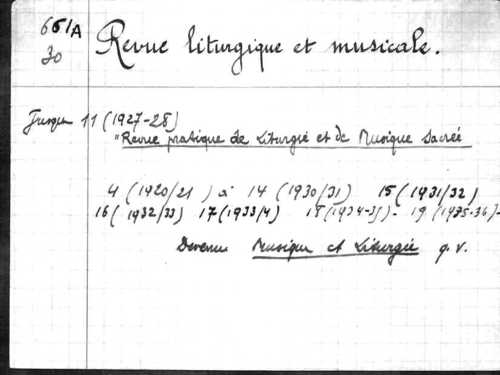 661/A
30
Revue liturgique et musicale.
Jusqu 11 (1927-28)
"Revue pratique de Liturgie et de Musique Sacrée
4 (1920/21) à 14 (1930/31) 15 (1931/32)
16 (1932/33) 17 (1933/4) 18 (1934-35)- 19 (1935-36)-
Devenu Musique et Liturgie q.v.